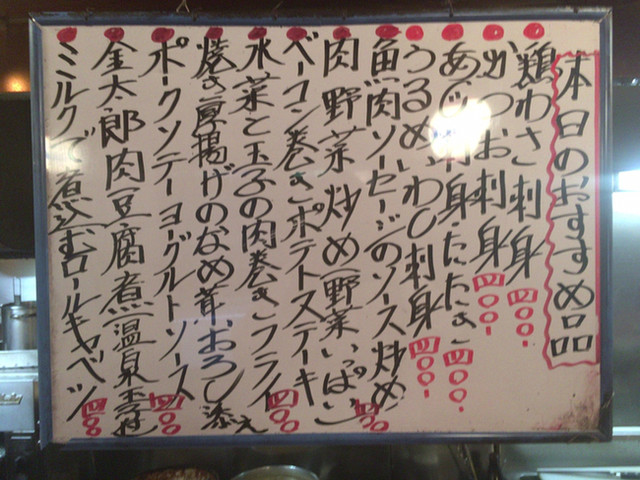 本日のおすすめ品
鶏わさ刺身 四〇〇-
かつお刺身 四〇〇-
あじ刺身・たたき 四〇〇-
うるめいわし刺身 四〇〇-
魚肉ソーセージのソース炒め 四〇〇
肉野菜炒め(野菜いっぱい)
ベーコン巻きポテトステーキ
水菜と玉子の肉巻きフライ 四〇〇
焼き厚揚げのなめ茸おろし添え
ポークソテーヨーグルトソース 四〇〇
金太郎肉豆腐煮(温泉玉子付)
ミルクで煮込むロールキャベツ 四〇〇